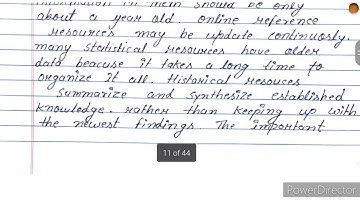 information in them should be only
about a year old. online reference
resources may be update continuosly.
many statistical resources have older
data beacuse it takes a long time to
organize it all. Historical resouces
summarize and synthesize established
knowledge. rather than keeping up with
the newest findings. The important
11 of 44
PowerDirector